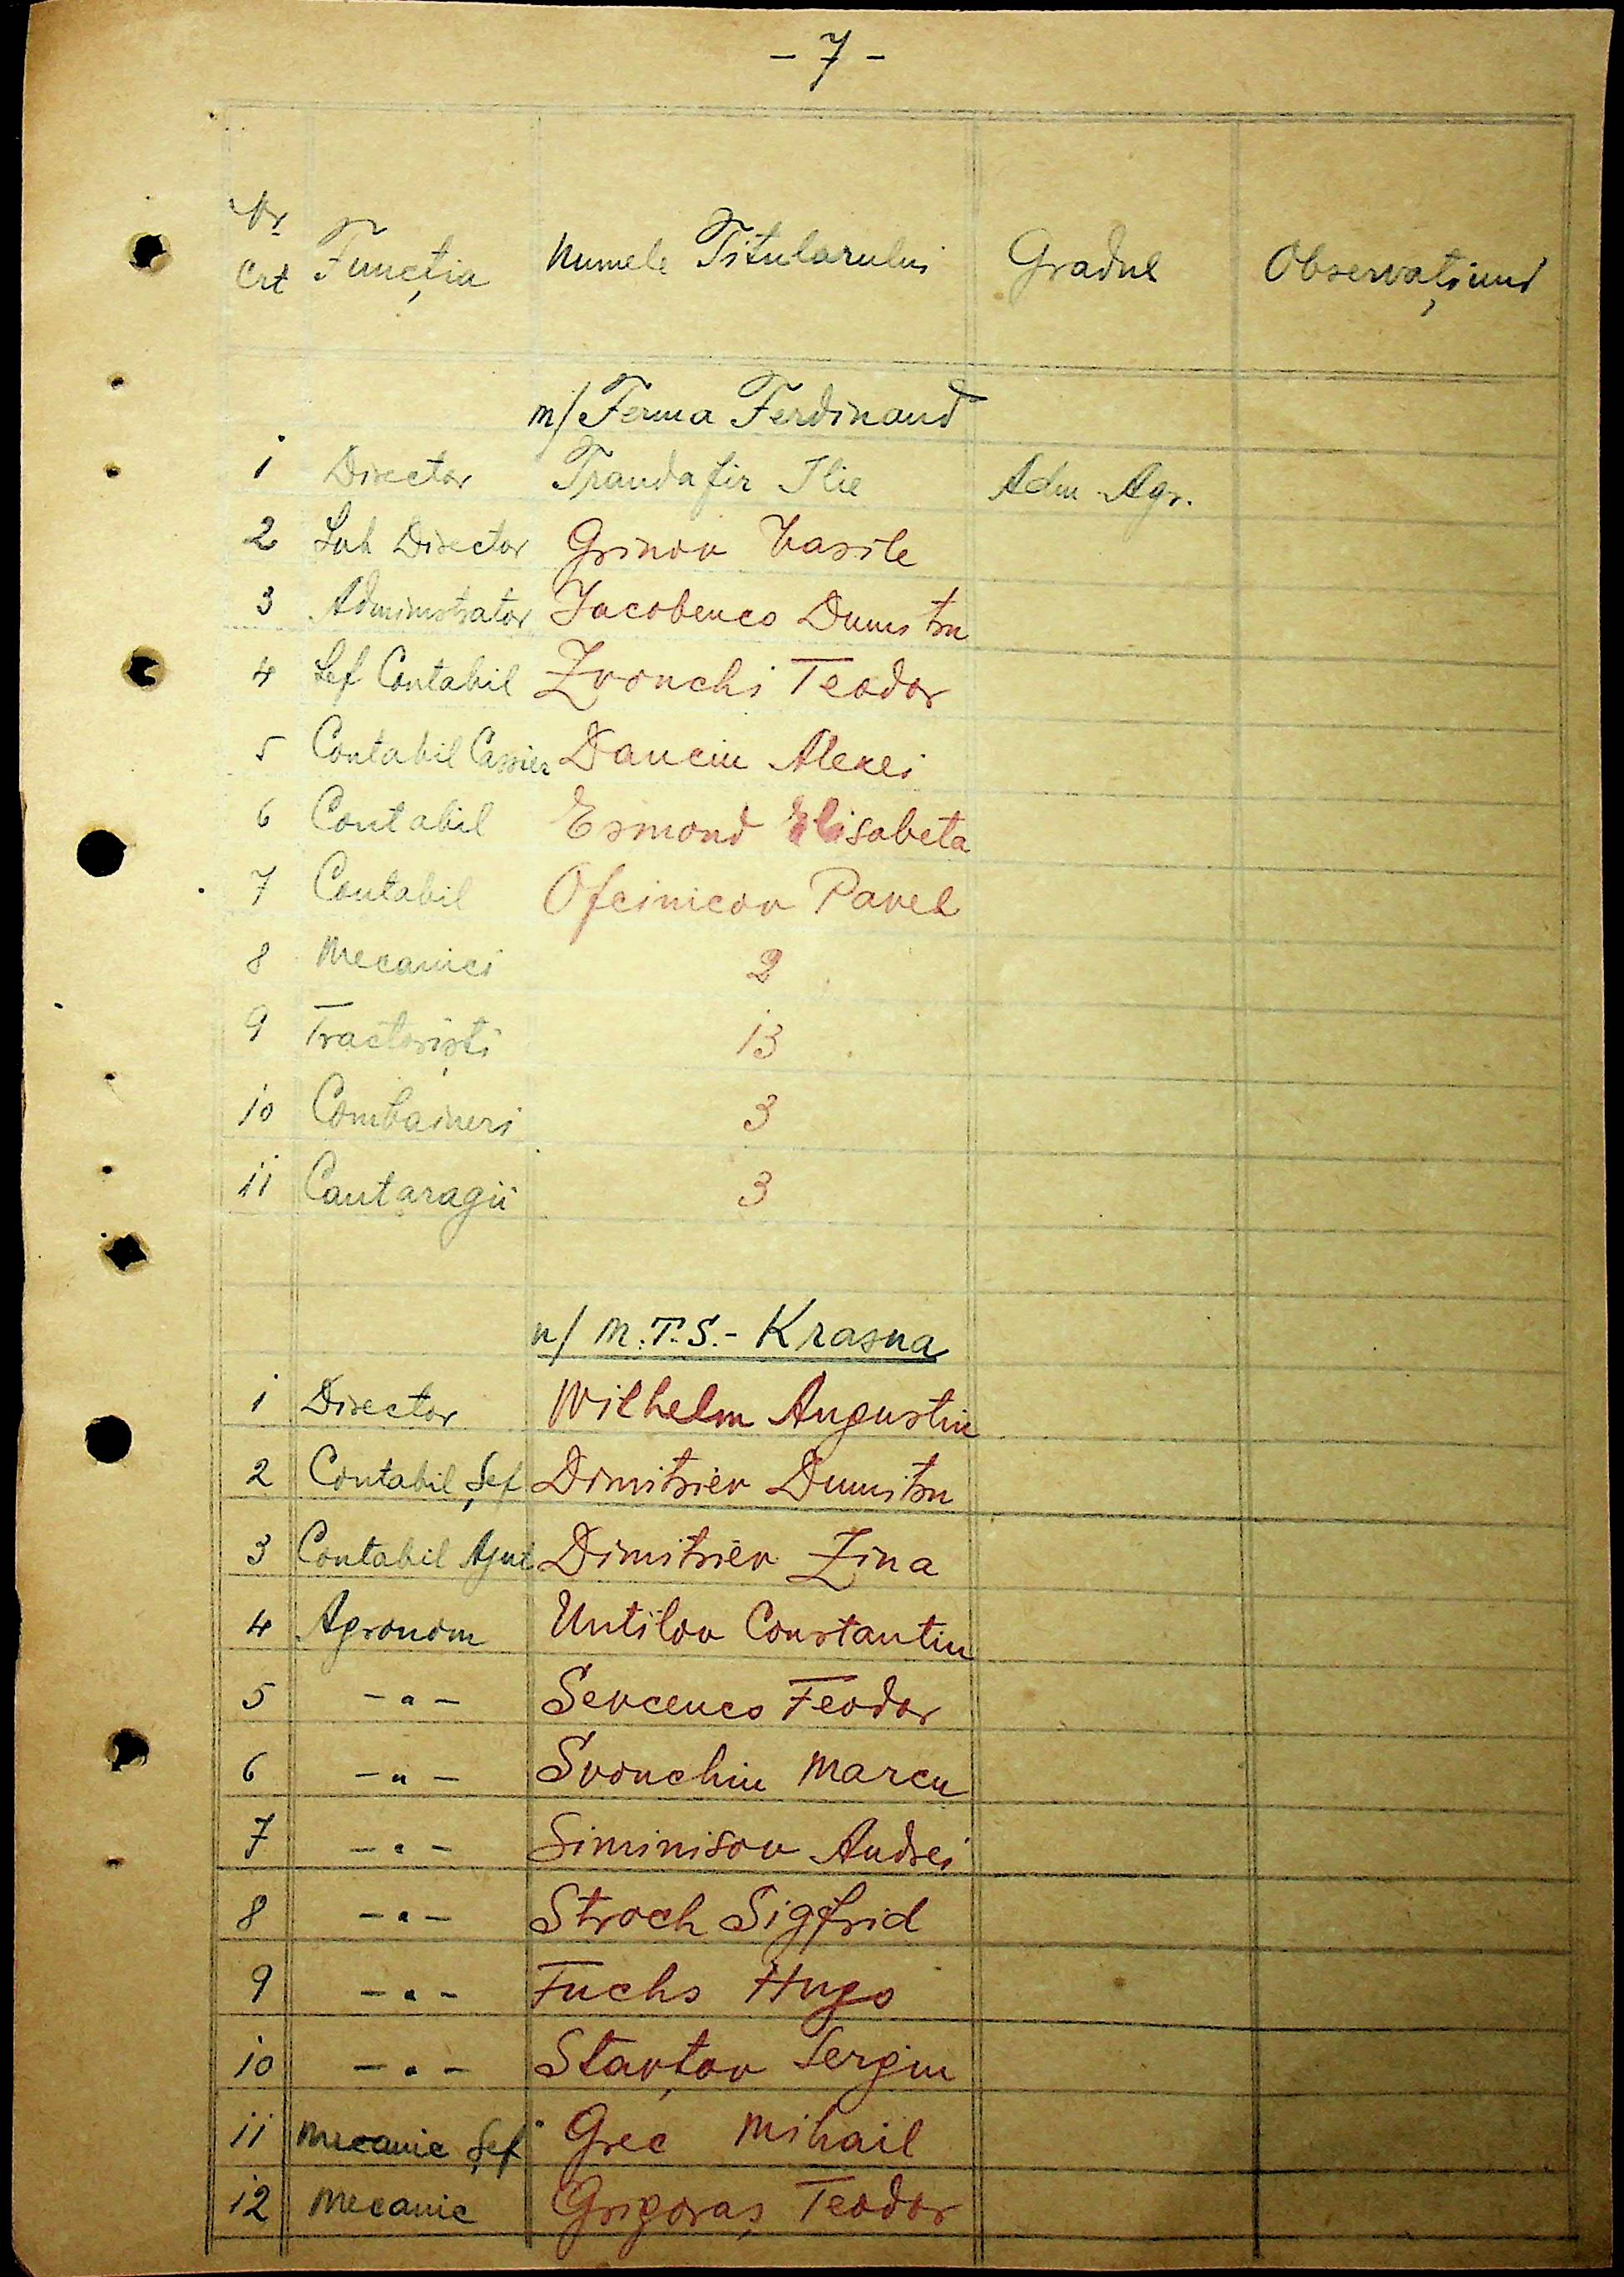 - 7 -
Nr
Crt Funcția Numele Titularului Gradul Observațiuni
m/ Ferma Ferdinand
1 Director Trandafir Ilie Adm. Agr.
2 Sub Director Grinov Vasile
3 Administrator Iacobenco Dumitru
4 Sef Contabil Zvonchi Teodor
5 Contabil Cassier Danciu Alexei
6 Contabil Esmond Elisabeta
7 Contabil Ofcinicov Pavel
8 Mecanici 2
9 Tractoriști 13
10 Combaineri 3
11 Cantaragii 3
n/ M.T.S.- Krasna
1 Director Wilhelm Augustin
2 Contabil Șef Dimitriev Dumitru
3 Contabil Ajut Dimitriev Zina
4 Agronom Untilov Constantin
5 - " - Sevcenco Feodor
6 - " - Svonchin Marcu
7 - " - Siminisov Andrei
8 - " - Stroch Sigfrid
9 - " - Fuchs Hugo
10 - " - Stavțov Sergiu
11 Mecanic Șef Grec Mihail
12 Mecanic Grigoraș Teodor